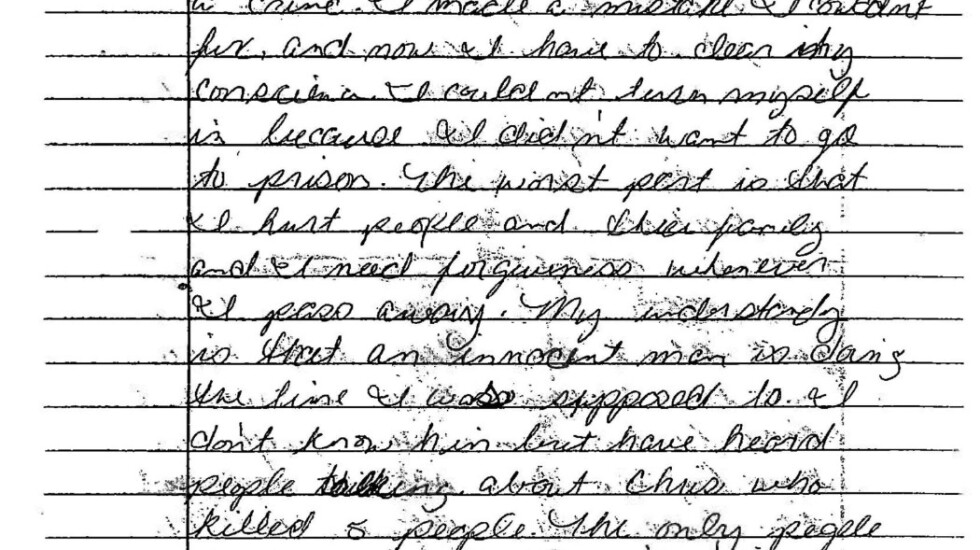 a crime. I made a mistake I couldnt
for, and now I have to clear my
conscience. I could not turn myself
in because I didn't want to go
to prison. The worst part is that
I hurt people and their family
and I need forgiveness whenever
I pass away. My understandy
is that an innocent man is doing
the time I was supposed to. I
don't know him but have heard
people talking about Chris who
killed 5 people. The only people